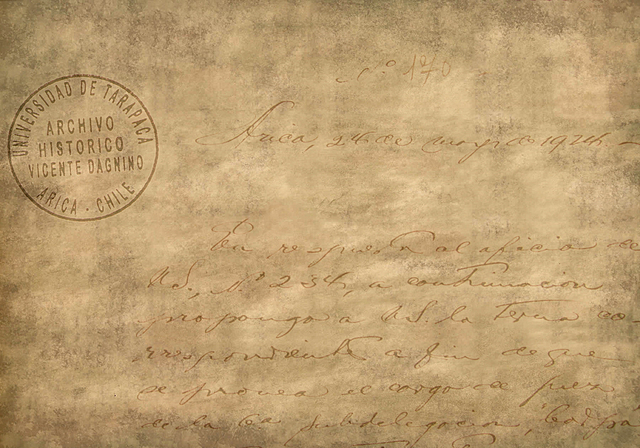 UNIVERSIDAD DE TARAPACA
ARCHIVO
HISTORICO
VICENTE DAGNINO
ARICA - CHILE
Nº 170
Arica, 24 de mayo de 1924.-
En respuesta al oficio de
US., Nº 254, a continuacion
propongo a US. la terna co-
rrespondiente a fin de que
se provea el cargo de juez
de la 6a subdelegacion,